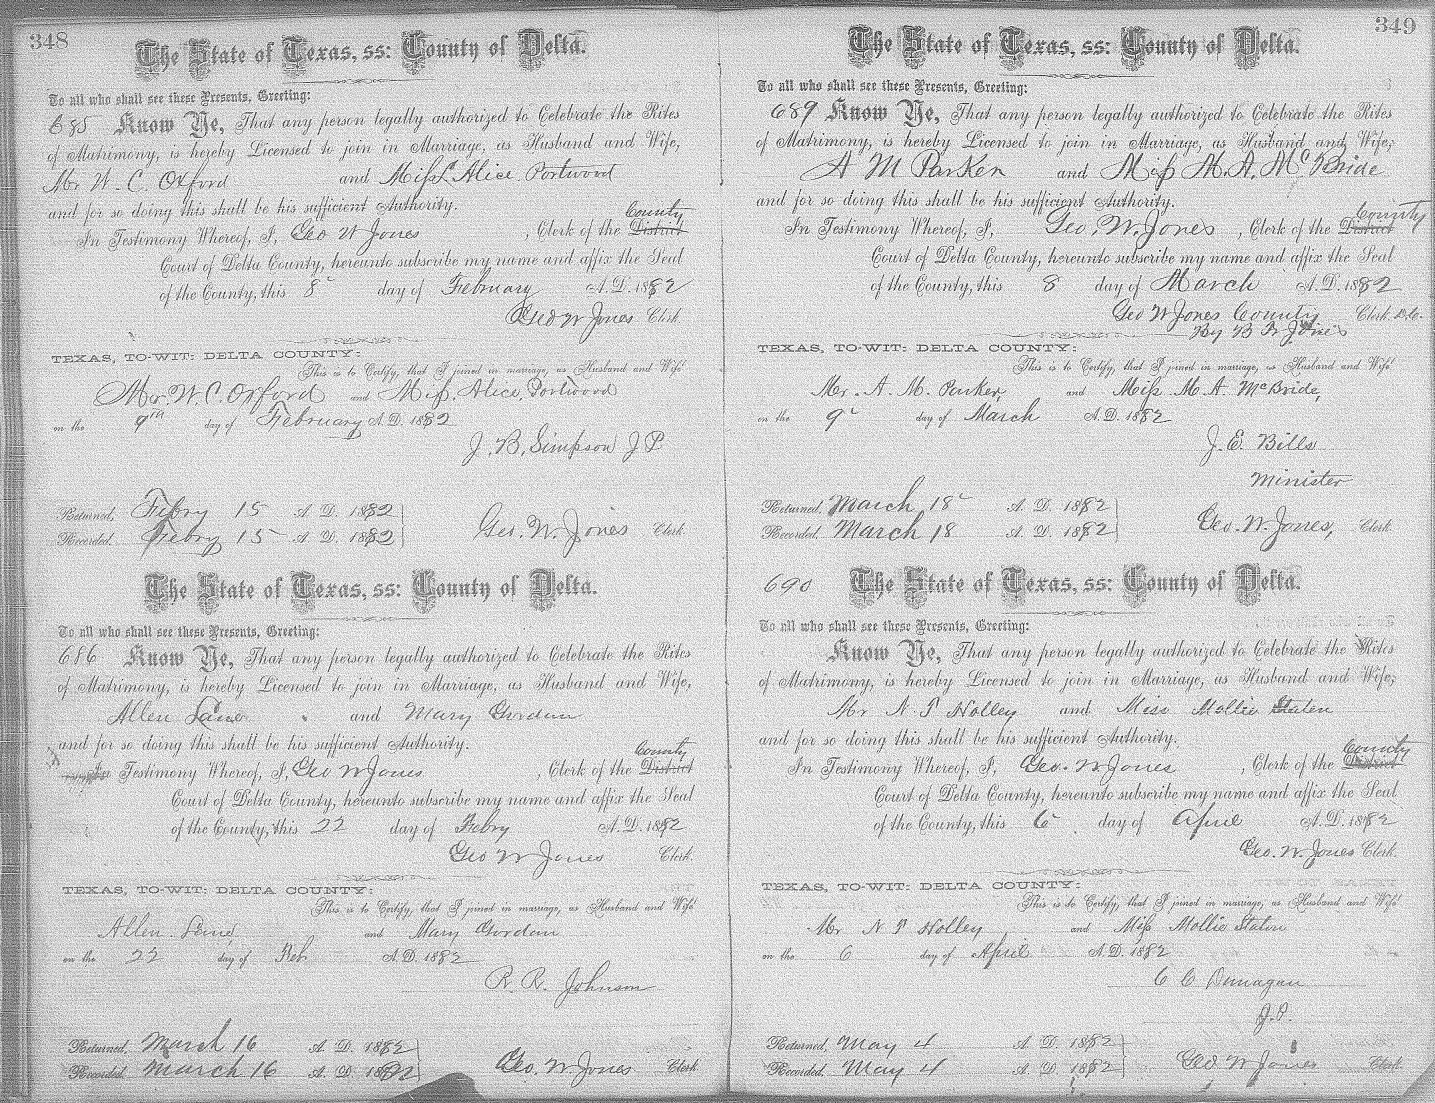 348
The State of Texas, ss: County of Delta.
To all who shall see these Presents, Greeting:
685 Know Ye, That any person legally authorized to Celebrate the Rites
of Matrimony, is hereby Licensed to join in Marriage, as Husband and Wife,
Mr W. C. Oxford and Miss Alice Portwood
and for so doing this shall be his sufficient Authority.
County
In Testimony Whereof, I, Geo W Jones, Clerk of the District
Court of Delta County, hereunto subscribe my name and affix the Seal
of the County, this 8 day of February A. D. 1882
Geo W Jones Clerk
TEXAS, TO-WIT: DELTA COUNTY:
This is to Certify, that I joined in marriage, as Husband and Wife
Mr. W. C. Oxford and Miss. Alice. Portwood
on the 9th day of February A. D. 1882
J. B. Simpson J P
Returned, Febry 15 A. D. 1882
Recorded, Febry 15 A. D. 1882 Geo. W. Jones Clerk
The State of Texas, ss: County of Delta.
To all who shall see these Presents, Greeting:
686 Know Ye, That any person legally authorized to Celebrate the Rites
of Matrimony, is hereby Licensed to join in Marriage, as Husband and Wife,
Allen Lane and Mary Gordan
and for so doing this shall be his sufficient Authority.
County
In Testimony Whereof, I, Geo W Jones, Clerk of the District
Court of Delta County, hereunto subscribe my name and affix the Seal
of the County, this 22 day of Febry A. D. 1882
Geo W Jones Clerk.
TEXAS, TO-WIT: DELTA COUNTY:
This is to Certify, that I joined in marriage, as Husband and Wife
Allen Lane, and Mary Gordan
on the 22 day of Feb A. D. 1882
R. R. Johnson
Returned, March 16 A. D. 1882
Recorded, March 16 A. D. 1882 Geo. W Jones Clerk
349
The State of Texas, ss: County of Delta.
To all who shall see these Presents, Greeting:
689 Know Ye, That any person legally authorized to Celebrate the Rites
of Matrimony, is hereby Licensed to join in Marriage, as Husband and Wife,
A M Parker and Miss M. A. McBride
and for so doing this shall be his sufficient Authority.
County
In Testimony Whereof, I, Geo. W. Jones, Clerk of the District
Court of Delta County, hereunto subscribe my name and affix the Seal
of the County, this 8 day of March A. D. 1882
Geo W Jones County Clerk D.Co.
By B F Jones
TEXAS, TO-WIT: DELTA COUNTY:
This is to Certify, that I joined in marriage, as Husband and Wife
Mr. A. M. Parker, and Miss M. A McBride,
on the 9 day of March A. D. 1882
J. E. Bills
Minister
Returned, March 18 A. D. 1882
Recorded, March 18 A. D. 1882 Geo. W. Jones, Clerk
690 The State of Texas, ss: County of Delta.
To all who shall see these Presents, Greeting:
Know Ye, That any person legally authorized to Celebrate the Rites
of Matrimony, is hereby Licensed to join in Marriage, as Husband and Wife,
Mr N P Holley and Miss Mollie Staten
and for so doing this shall be his sufficient Authority.
County
In Testimony Whereof, I, Geo. W Jones, Clerk of the District
Court of Delta County, hereunto subscribe my name and affix the Seal
of the County, this 6 day of April A. D. 1882
Geo. W. Jones Clerk.
TEXAS, TO-WIT: DELTA COUNTY:
This is to Certify, that I joined in marriage, as Husband and Wife
Mr N P Holley and Miss Mollie Staten
on the 6 day of April A. D. 1882
C C Dunagan
J. P.
Returned, May 4 A. D. 1882
Recorded, May 4 A. D. 1882 Geo W Jones Clerk